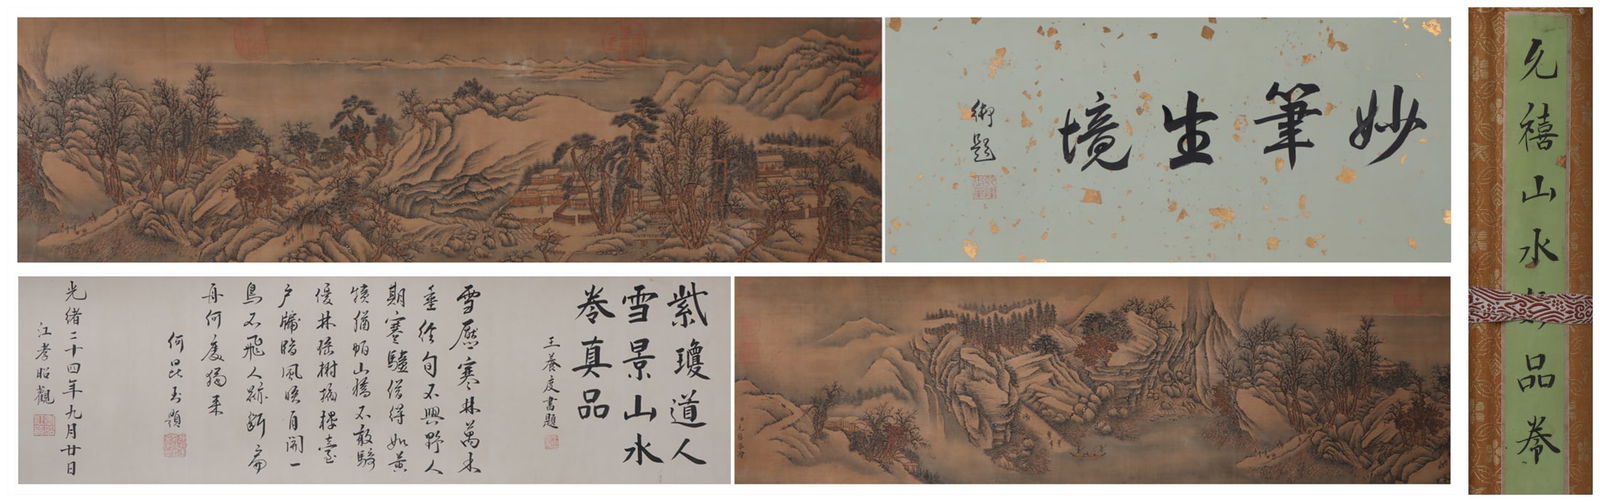 妙筆生境
御題
允禧山水品卷
紫瓊道人
雪景山水
卷真品
王養度書題
雪壓寒林萬木
垂經旬不與野人
期寒驢借得如黃
犢猶怕山橋不敢騎
林樹擁樓臺
戶牖臨風晚自開一
鳥不飛人跡斷扁
舟何處獨來
何昆玉題
光緒二十四年九月廿日
江孝昭觀